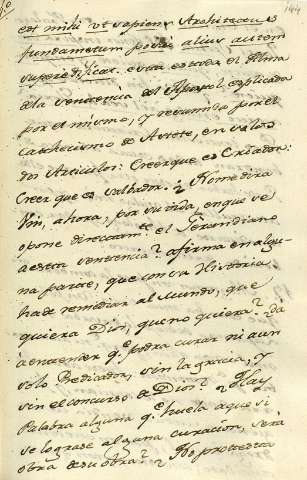 est mihi vt sapiens Architectus
fundamentum posui alius autem
superedificat. esta es toda el Alma
de la sentencia del Apostol explicada
por el mismo, y resumida por el
cathecismo de Astete, en solos
dos Articulos: Creer que es Criador:
Creer que es salbador. Y No me dira
Vm, ahora, por su vida, en que se
opone directamte el Gerundiano
a esta sentencia? afirma en algu-
na parte, que con su Historia
ha de remediar al Mundo, que
quiera Dios, que no quiera? da
à entender qe podra curar ni aun
solo Predicador, sin la gracia, y
sin el concurso de Dios? Hay
Palabra alguna qe huela a que si
se lograse alguna curacion, será
obra de su obra? No protesta